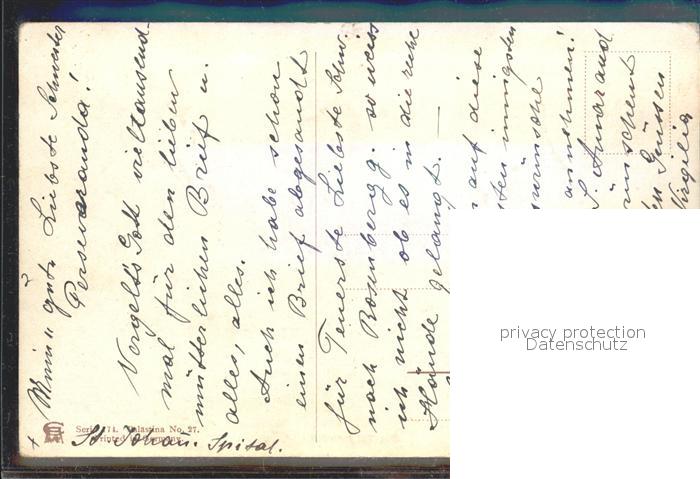 Meine gute Liebste Schwester
Perseveranda!
Vergelts Gott vieltausend-
mal für den lieben
mütterlichen Brief u.
alles, alles.
Auch ich habe schon
einen Brief abgesandt
für Teuerste Liebste
nach Rosenbergg. so weiss
ich nicht ob es in die rechte
Hände gelangt. —
auf diese
innigsten
annehmen!
S. Amarand
wünschent
Grüssen
Virgilia
St. Johann. Spital.
Serie 74. Palästina No. 27.
Printed in Germany.
privacy protection
Datenschutz